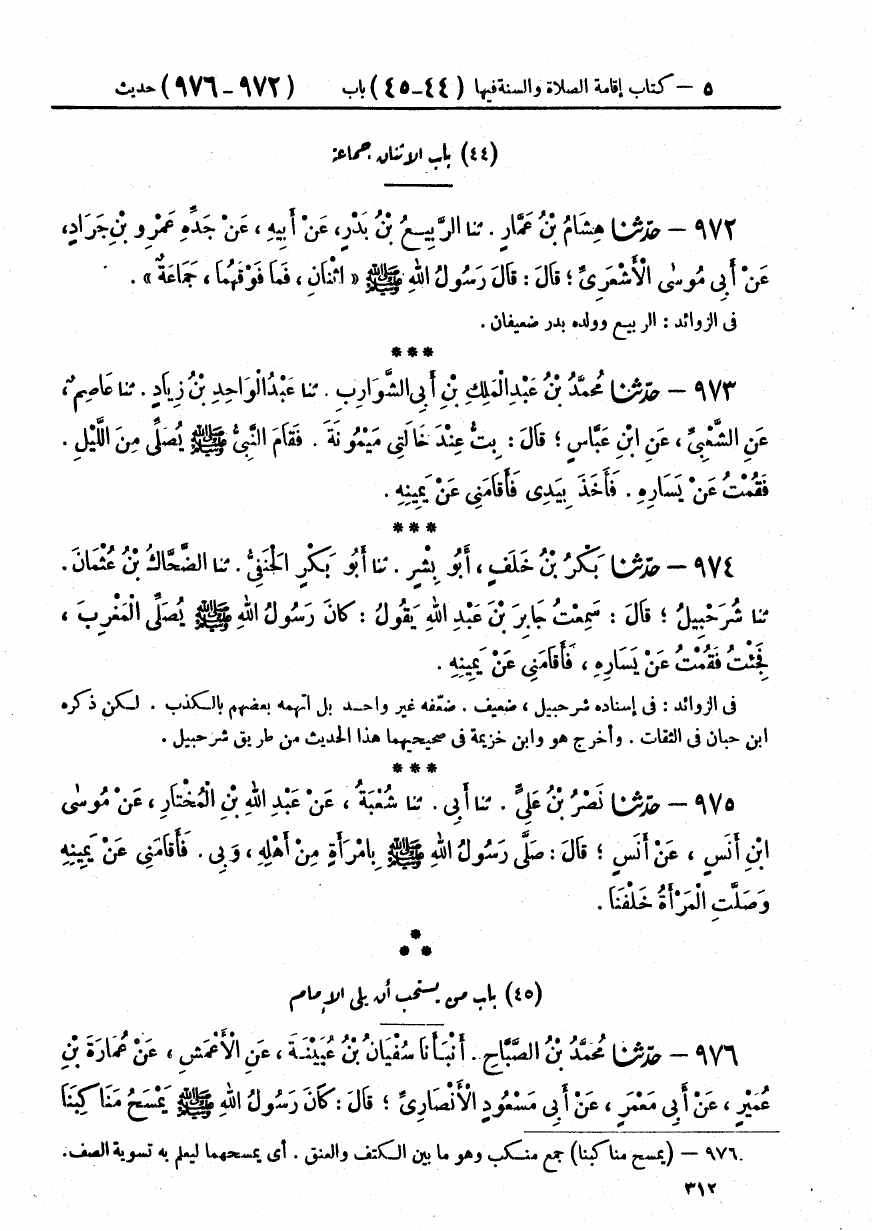 ٥ – كتاب إقامة الصلاة والسنة فيها (٤٤-٤٥) باب (٩٧٢-٩٧٦) حديث
(٤٤) باب الاثنان جماعة
٩٧٢ – حَدَّثَنَا هِشَامُ بْنُ عَمَّارٍ . ثنا الرَّبِيعُ بْنُ بَدْرٍ، عَنْ أَبِيهِ ، عَنْ جَدِّهِ عَمْرِو بْنِ جَرَادٍ،
عَنْ أَبِي مُوسَى الْأَشْعَرِيِّ ؛ قَالَ : قَالَ رَسُولُ اللهِ ﷺ « اثْنَانِ ، فَمَا فَوْقَهُمَا ، جَمَاعَةٌ » .
فى الزوائد : الربيع وولده بدر ضعيفان .
***
٩٧٣ – حَدَّثَنَا مُحَمَّدُ بْنُ عَبْدِ الْمَلِكِ بْنِ أَبِي الشَّوَارِبِ . ثنا عَبْدُ الْوَاحِدِ بْنُ زِيَادٍ . ثنا عَاصِمٌ ،
عَنِ الشَّعْبِيِّ ، عَنِ ابْنِ عَبَّاسٍ ؛ قَالَ : بِتُّ عِنْدَ خَالَتِي مَيْمُونَةَ . فَقَامَ النَّبِيُّ ﷺ يُصَلِّي مِنَ اللَّيْلِ .
فَقُمْتُ عَنْ يَسَارِهِ . فَأَخَذَ بِيَدِى فَأَقَامَنِي عَنْ يَمِينِهِ .
***
٩٧٤ – حَدَّثَنَا بَكْرُ بْنُ خَلَفٍ ، أَبُو بِشْرٍ . ثنا أَبُو بَكْرٍ الْحَنَفِيُّ . ثنا الضَّحَّاكُ بْنُ عُثْمَانَ .
ثنا شُرَحْبِيلُ ؛ قَالَ : سَمِعْتُ جَابِرَ بْنَ عَبْدِ اللهِ يَقُولُ : كَانَ رَسُولُ اللهِ ﷺ يُصَلِّي الْمَغْرِبَ ،
فَجِئْتُ فَقُمْتُ عَنْ يَسَارِهِ ، فَأَقَامَنِي عَنْ يَمِينِهِ .
فى الزوائد : فى إسناده شرحبيل ، ضعيف . ضعّفه غير واحد بل اتهمه بعضهم بالكذب . لكن ذكره
ابن حبان فى الثقات . وأخرج هو وابن خزيمة فى صحيحيهما هذا الحديث من طريق شرحبيل .
***
٩٧٥ – حَدَّثَنَا نَصْرُ بْنُ عَلِيٍّ . ثنا أَبِي . ثنا شُعْبَةُ ، عَنْ عَبْدِ اللهِ بْنِ الْمُخْتَارِ ، عَنْ مُوسَى
ابْنِ أَنَسٍ ، عَنْ أَنَسٍ ؛ قَالَ : صَلَّى رَسُولُ اللهِ ﷺ بِامْرَأَةٍ مِنْ أَهْلِهِ ، وَبِي . فَأَقَامَنِي عَنْ يَمِينِهِ
وَصَلَّتِ الْمَرْأَةُ خَلْفَنَا .
***
(٤٥) باب من يستحب أن يلى الإمام
٩٧٦ – حَدَّثَنَا مُحَمَّدُ بْنُ الصَّبَّاحِ . أَنْبَأَنَا سُفْيَانُ بْنُ عُيَيْنَةَ ، عَنِ الْأَعْمَشِ ، عَنْ عُمَارَةَ بْنِ
عُمَيْرٍ ، عَنْ أَبِي مَعْمَرٍ ، عَنْ أَبِي مَسْعُودٍ الْأَنْصَارِيِّ ؛ قَالَ : كَانَ رَسُولُ اللهِ ﷺ يَمْسَحُ مَنَاكِبَنَا
٩٧٦ – (يمسح مناكبنا) جمع منكب وهو ما بين الكتف والعنق . أى يمسحهما ليعلم به تسوية الصف .
٣١٢